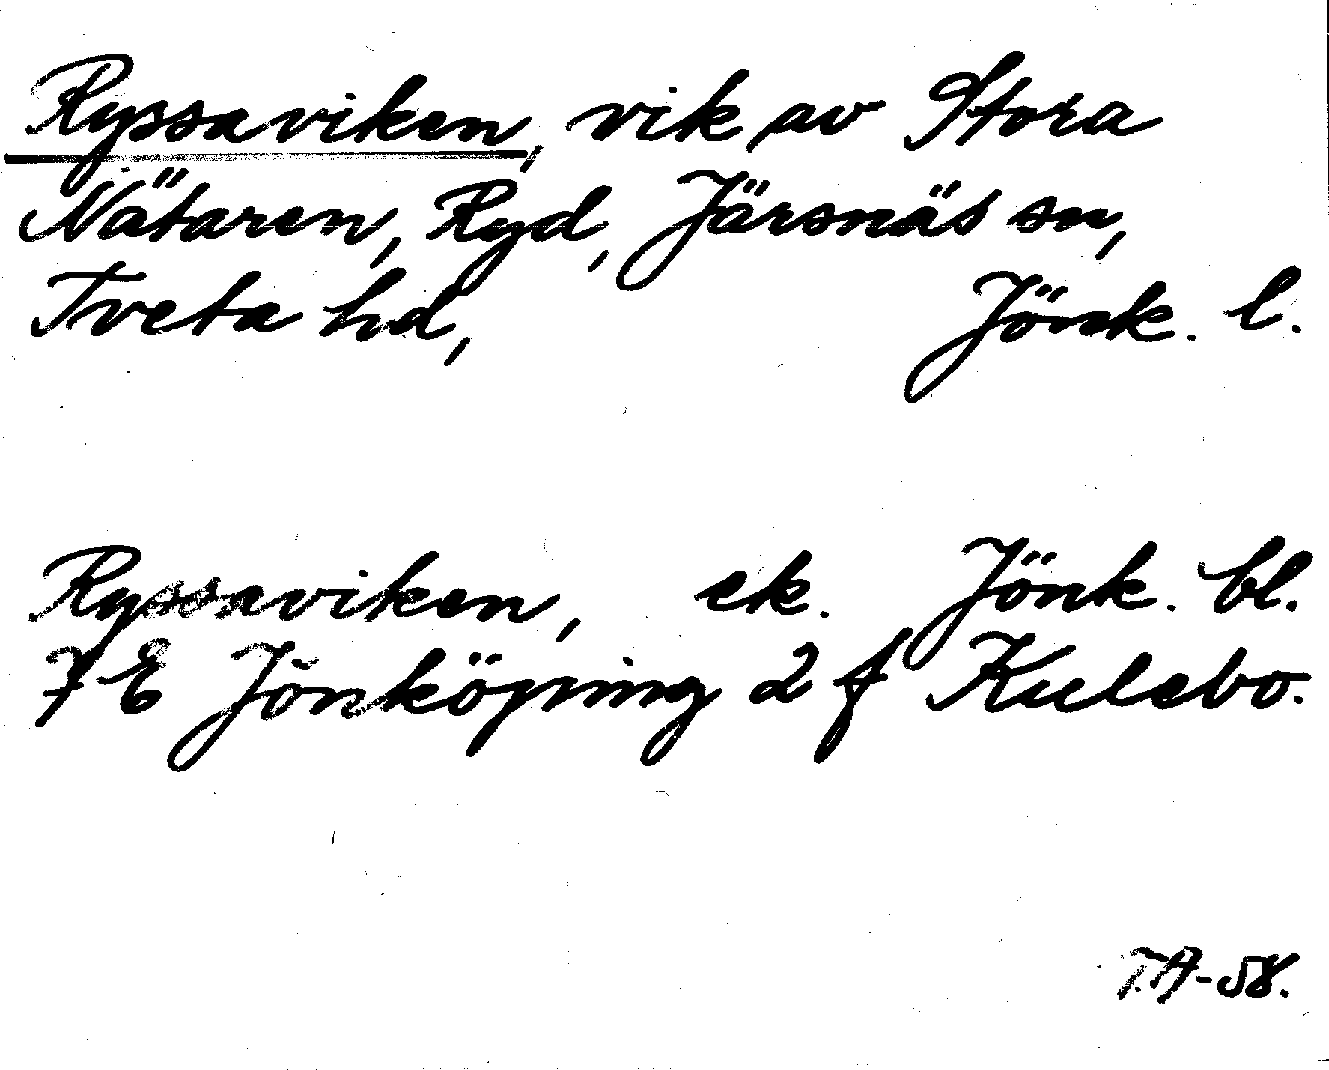 Ryssaviken, vik av Stora
Nätaren, Ryd, Järsnäs sn,
Tveta hd, Jönk. l.
Ryssaviken, ek. Jönk. bl.
7 E Jönköping 2 f Kulebo.
T.A-58.